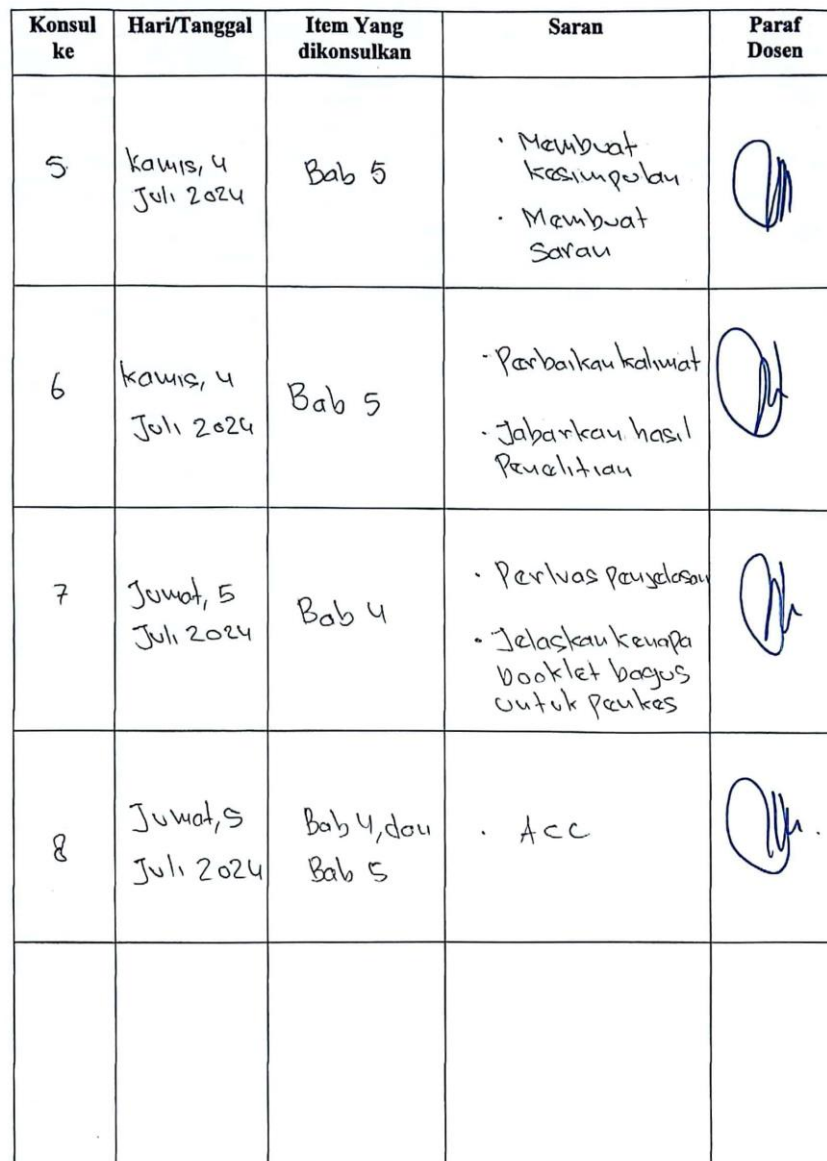 Konsul ke
Hari/Tanggal
Item Yang dikonsulkan
Saran
Paraf Dosen
5
Kamis, 4
Juli 2024
Bab 5
· Membuat
kesimpulan
· Membuat
Saran
6
Kamis, 4
Juli 2024
Bab 5
· Perbaikan kalimat
· Jabarkan hasil
Penelitian
7
Jumat, 5
Juli 2024
Bab 4
· Perluas Penjelasan
· Jelaskan kenapa
booklet bagus
untuk Penkes
8
Jumat, 5
Juli 2024
Bab 4, dan
Bab 5
· Acc